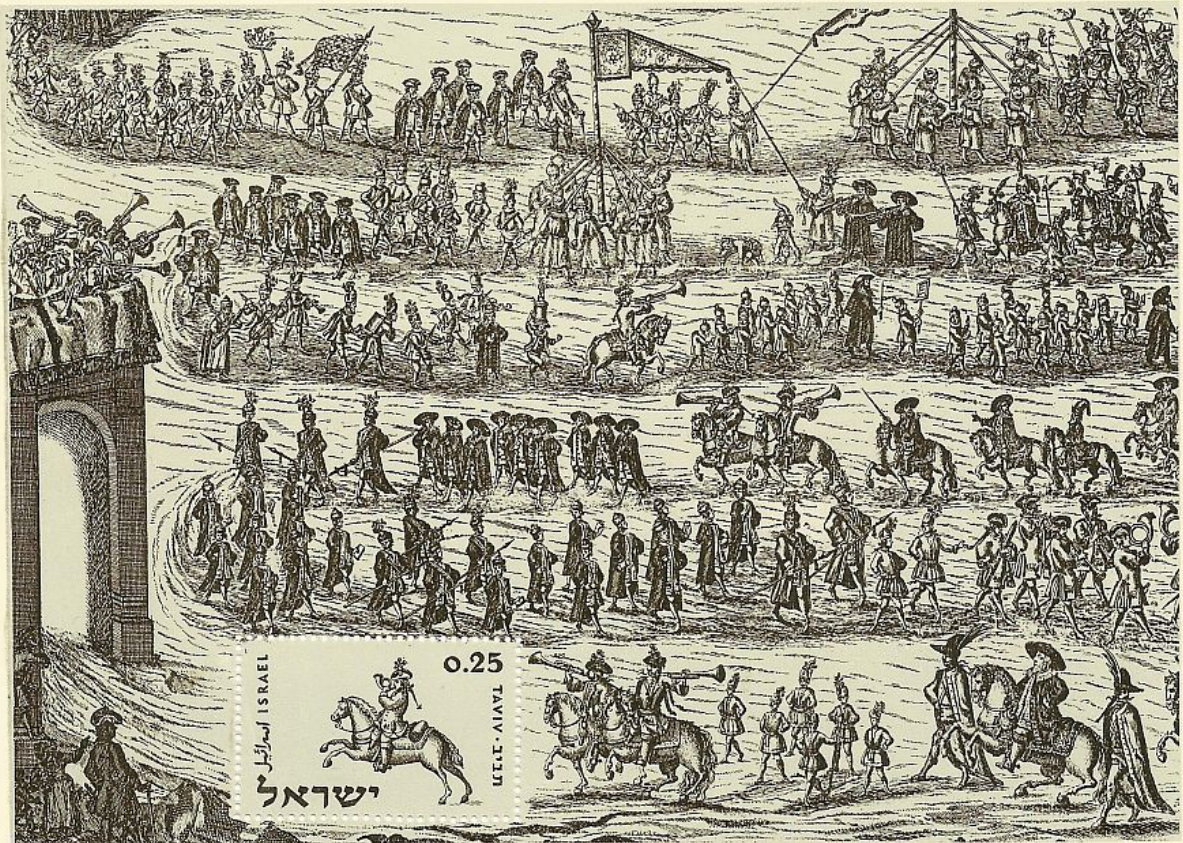 0.25
ISRAEL
اسرائيل
TAVIV תבי״ב
ישראל